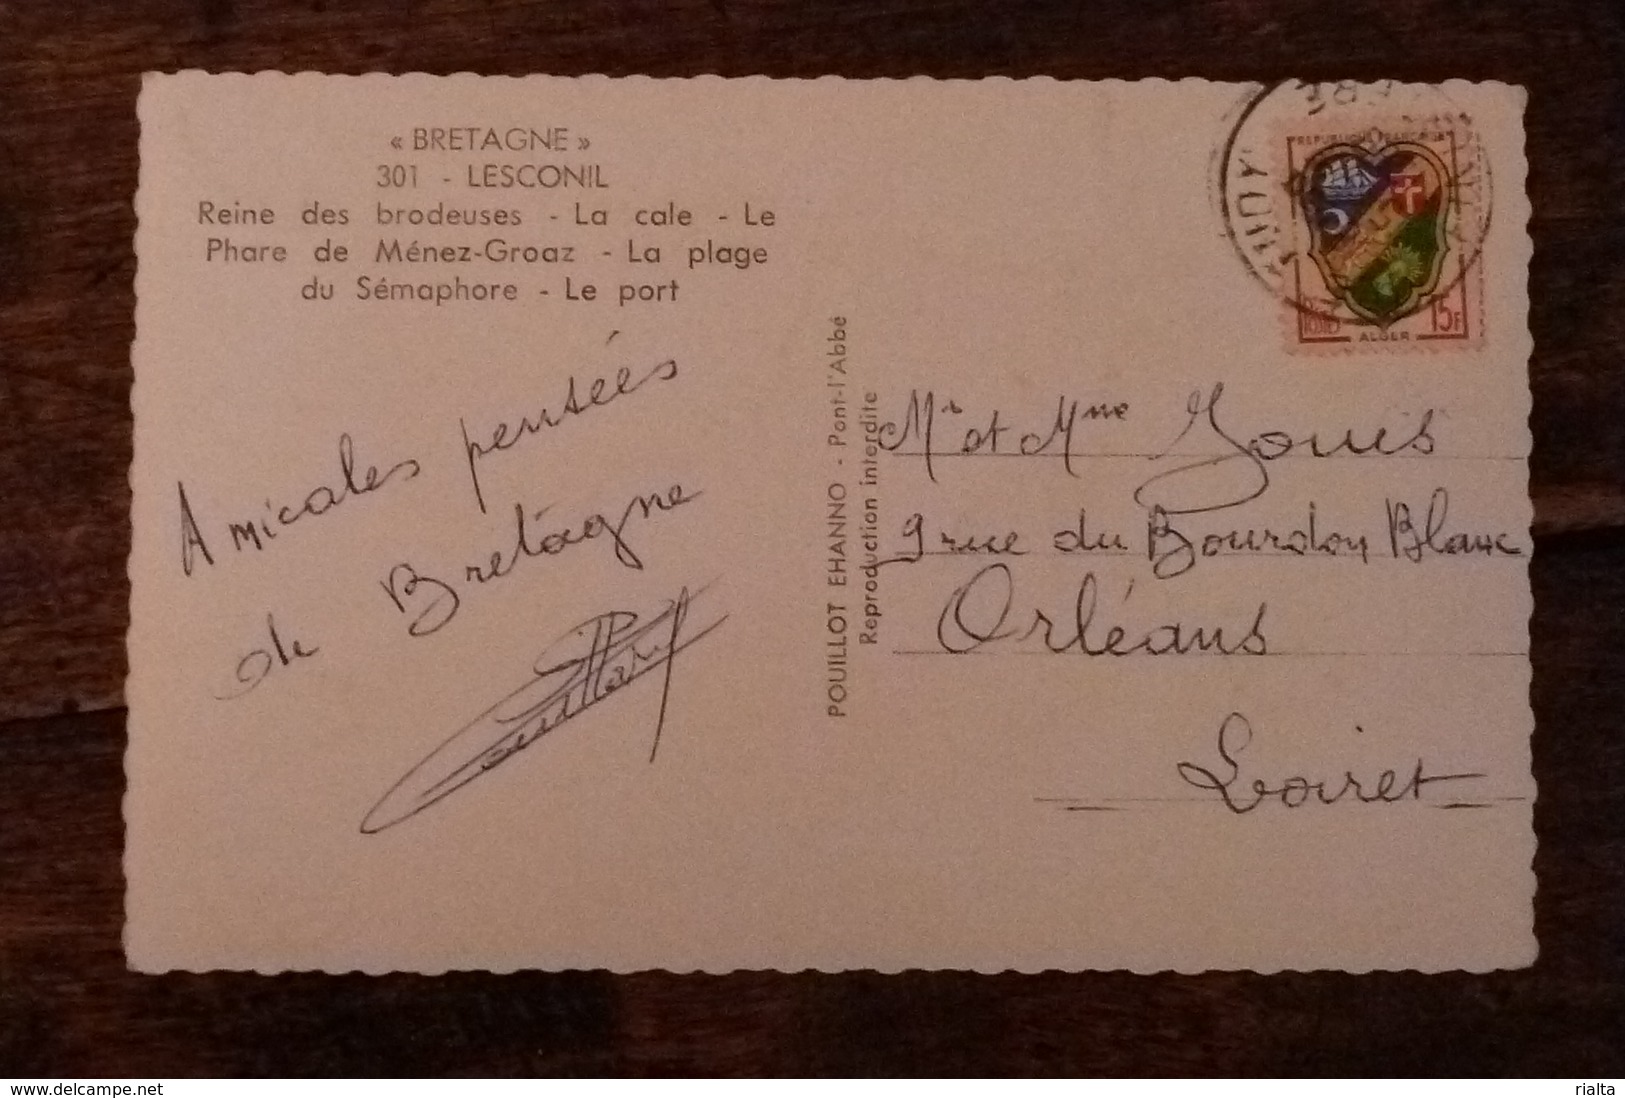 « BRETAGNE »
301 - LESCONIL
Reine des brodeuses - La cale - Le
Phare de Ménez-Groaz - La plage
du Sémaphore - Le port
Amicales pensées
de Bretagne
POUILLOT EHANNO - Pont-l'Abbé
Reproduction interdite
REPUBLIQUE FRANÇAISE
POSTES
15F
ALGER
Mr et Mme Jouis
9 rue du Bourdon Blanc
Orléans
Loiret
www.delcampe.net
rialta